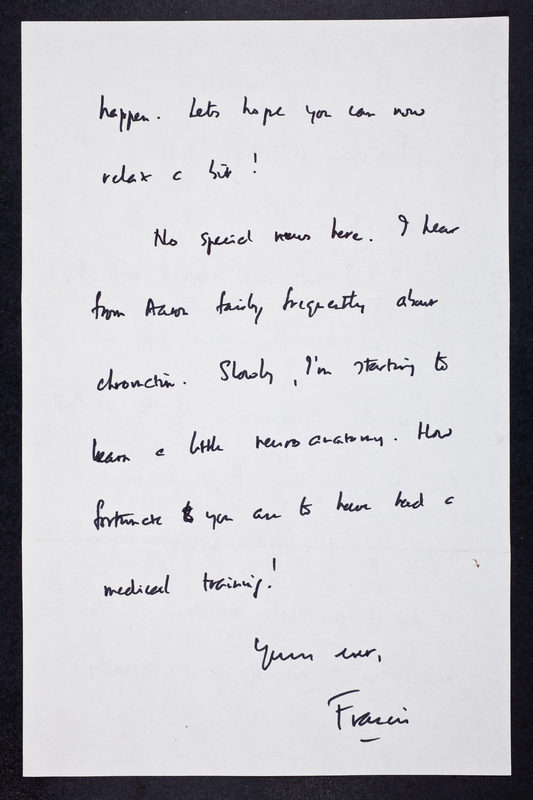 happen. Lets hope you can now
relax a bit!
No special news here. I hear
from Aaron fairly frequently about
chromatin. Slowly, I'm starting to
learn a little neuroanatomy. How
fortunate you are to have had a
medical training!
Yours ever,
Francis